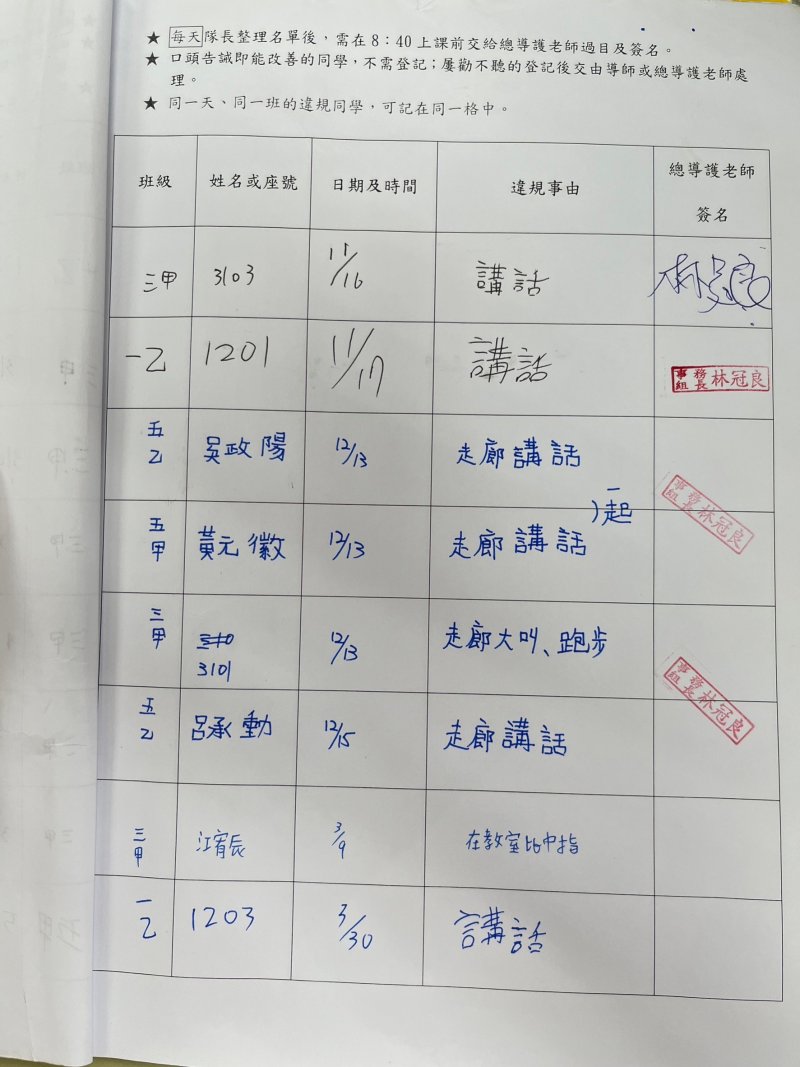 ★ 每天隊長整理名單後，需在 8：40 上課前交給總導護老師過目及簽名。
★ 口頭告誡即能改善的同學，不需登記；屢勸不聽的登記後交由導師或總導護老師處
理。
★ 同一天、同一班的違規同學，可記在同一格中。
班級 姓名或座號 日期及時間 違規事由 總導護老師
簽名
三甲 3103 11/16 講話 林冠良
一乙 1201 11/17 講話 事務組長林冠良
五乙 吳政陽 12/13 走廊講話
一起 事務組長林冠良
五甲 黃元徽 12/13 走廊講話
三甲 3101 12/13 走廊大叫、跑步
事務組長林冠良
五乙 呂承動 12/15 走廊講話
三甲 江宥辰 3/9 在教室比中指
一乙 1203 3/30 講話